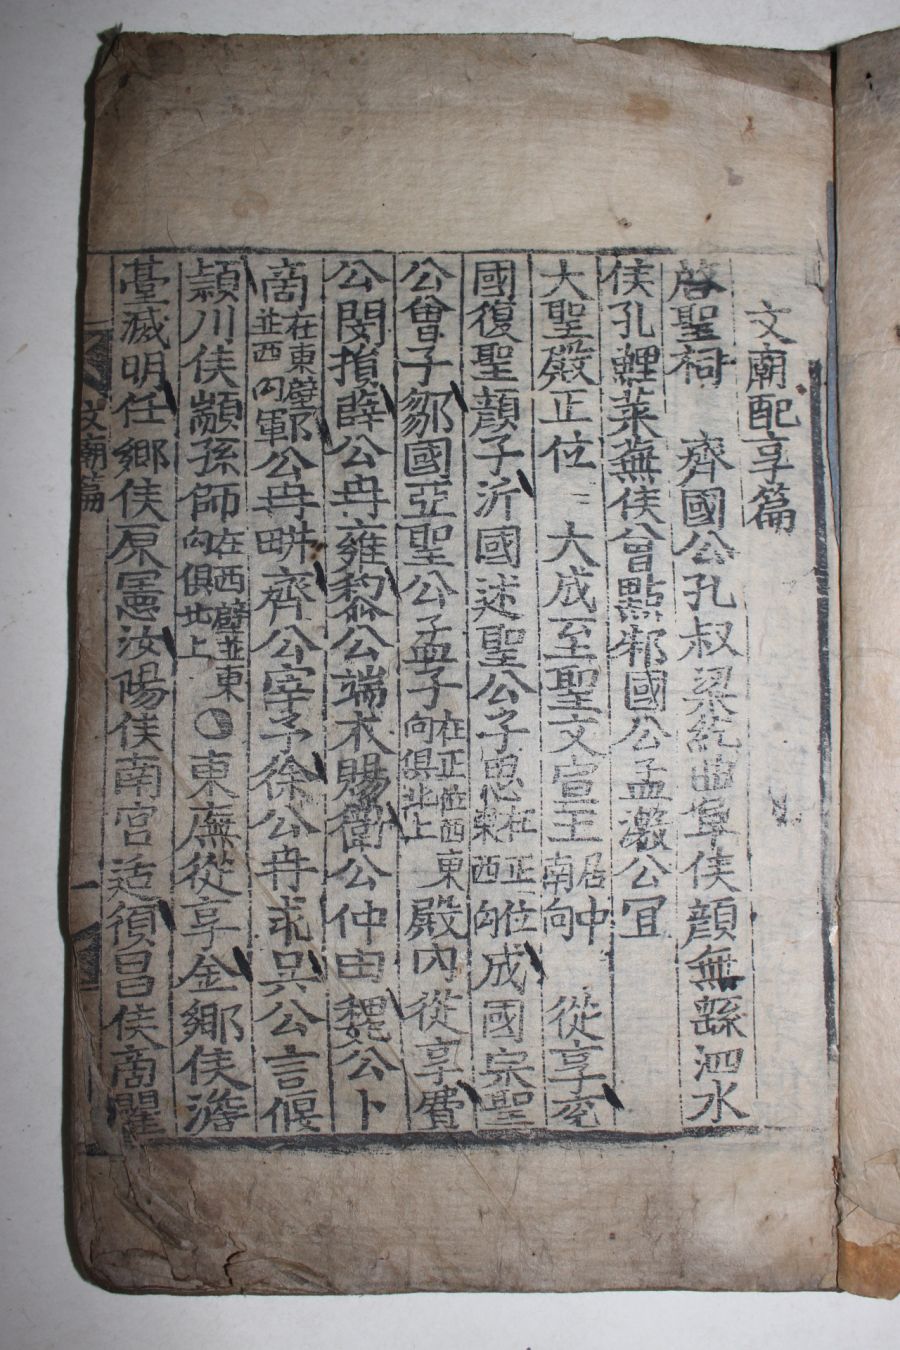 文廟配享篇
啓聖祠 齊國公孔叔梁紇曲阜侯顔無繇泗水
侯孔鯉萊蕪侯曾點邾國公孟激公冝
大聖殿正位 大成至聖文宣王居中南向 從享兗
國復聖顔子沂國述聖公子思在正位東西向成國宗聖
公曾子鄒國亞聖公孟子在正位西東向俱北上殿內從享費
公閔損薛公冉雍黎公端木賜衛公仲由魏公卜
商在東壁並西向鄆公冉畊齊公宰予徐公冉求吳公言偃
潁川侯顓孫師在西壁並東向俱北上東廡從享金鄉侯澹
臺滅明任鄉侯原憲汝陽侯南宮适須昌侯商瞿
文廟篇 一